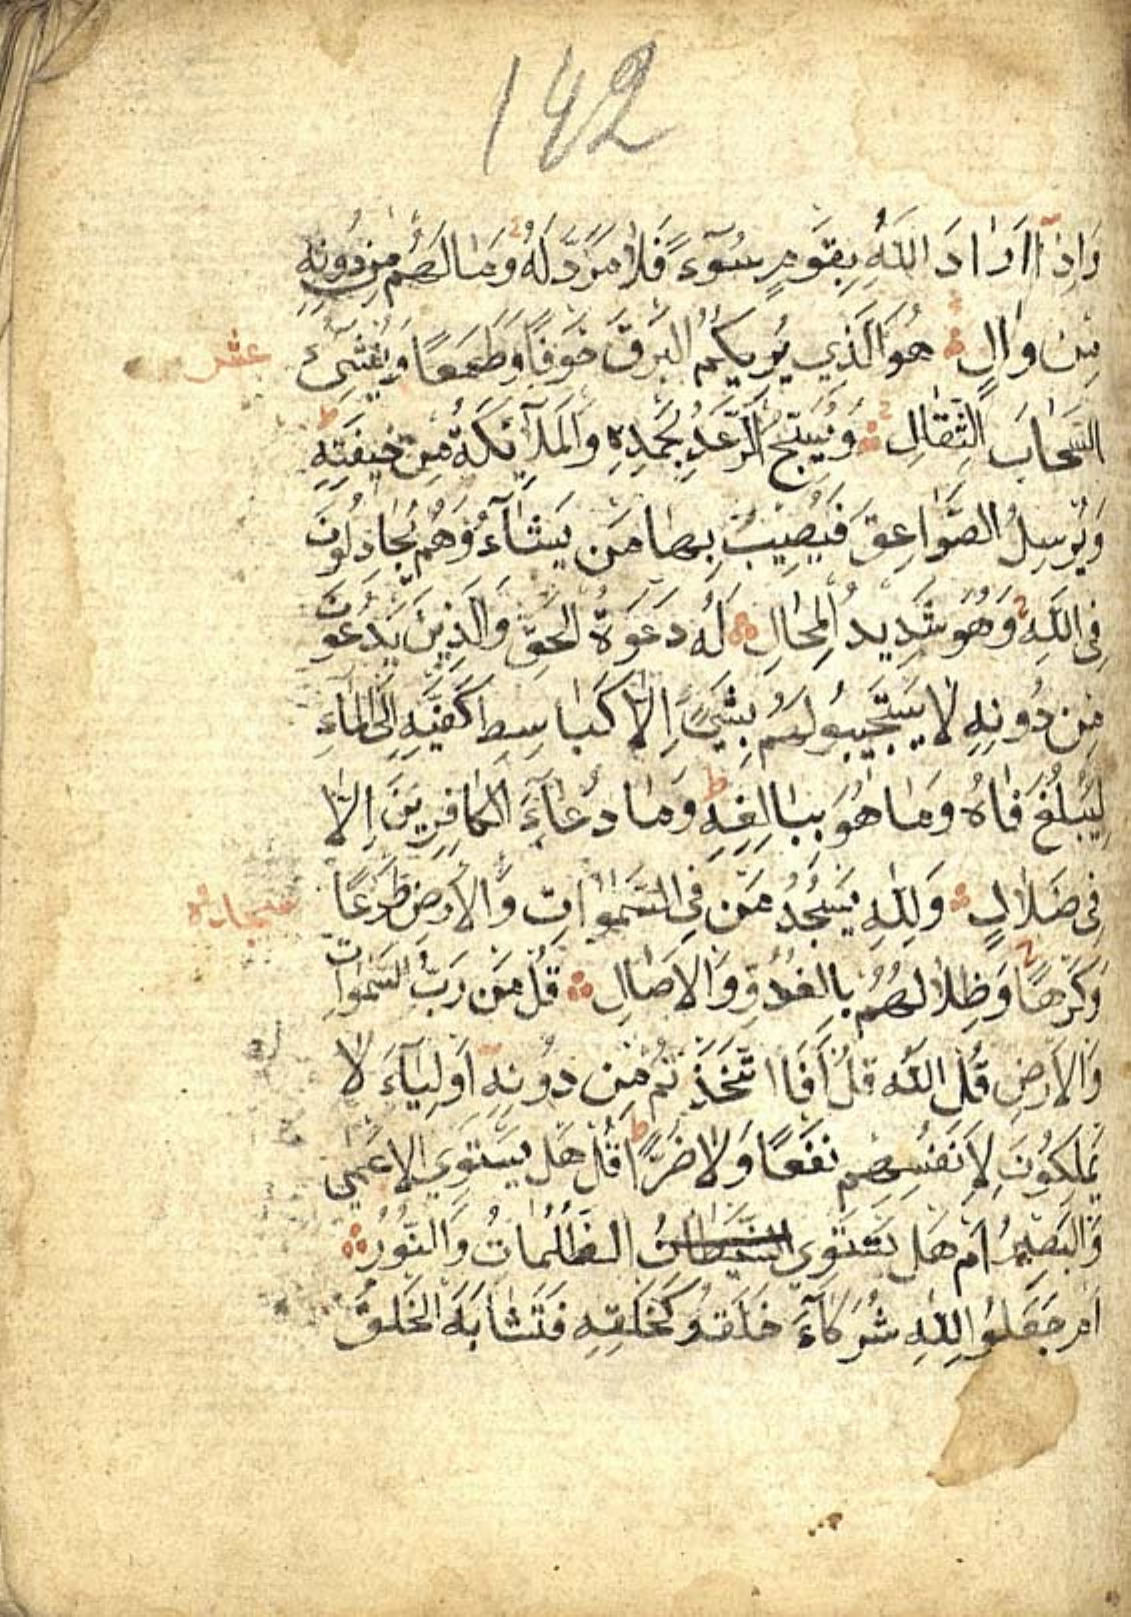 142
وَاِذَٓا اَرَادَ اللّٰهُ بِقَوْمٍ سُوٓءً فَلَا مَرَدَّ لَهُ وَمَا لَهُمْ مِنْ دُونِهِ
مِنْ وَالٍ هُوَ الَّذِي يُرِيكُمُ الْبَرْقَ خَوْفًا وَطَمَعًا وَيُنْشِئُ
عشر
السَّحَابَ الثِّقَالِ وَيُسَبِّحُ الرَّعْدُ بِحَمْدِهِ وَالْمَلَآئِكَةُ مِنْ خِيفَتِهِ
وَيُرْسِلُ الصَّوَاعِقَ فَيُصِيبُ بِهَا مَنْ يَشَآءُ وَهُمْ يُجَادِلُونَ
فِي اللّٰهِ وَهُوَ شَدِيدُ الْمِحَالِ لَهُ دَعْوَةُ الْحَقِّ وَالَّذِينَ يَدْعُونَ
مِنْ دُونِهِ لَا يَسْتَجِيبُو لَهُمْ بِشَيْءٍ اِلَّا كَبَاسِطِ كَفَّيْهِ اِلَى الْمَاءِ
لِيَبْلُغَ فَاهُ وَمَا هُوَ بِبَالِغِهِ وَمَا دُعَآءَ الْكَافِرِينَ اِلَّا
فِي ضَلَالٍ وَلِلّٰهِ يَسْجُدُ مَنْ فِي السَّمٰوَاتِ وَالْاَرْضِ طَوْعًا
سجاده
وَكَرْهًا وَظِلَالُهُمْ بِالْغُدُوِّ وَالْاٰصَالِ قُلْ مَنْ رَبُّ السَّمٰوَاتِ
وَالْاَرْضِ قُلِ اللّٰهُ قُلْ اَفَا اتَّخَذْتُمْ مِنْ دُونِهِ اَوْلِيَآءَ لَا
يَمْلِكُونَ لِاَنْفُسِهِمْ نَفْعًا وَلَا ضَرًّا قُلْ هَلْ يَسْتَوِي الْاَعْمَى
وَالْبَصِيرُ اَمْ هَلْ تَسْتَوِى الظُّلُمَاتُ وَالنُّورُ
اَمْ جَعَلُوا لِلّٰهِ شُرَكَآءَ خَلَقُو كَخَلْقِهِ فَتَشَابَهَ الْخَلْقُ